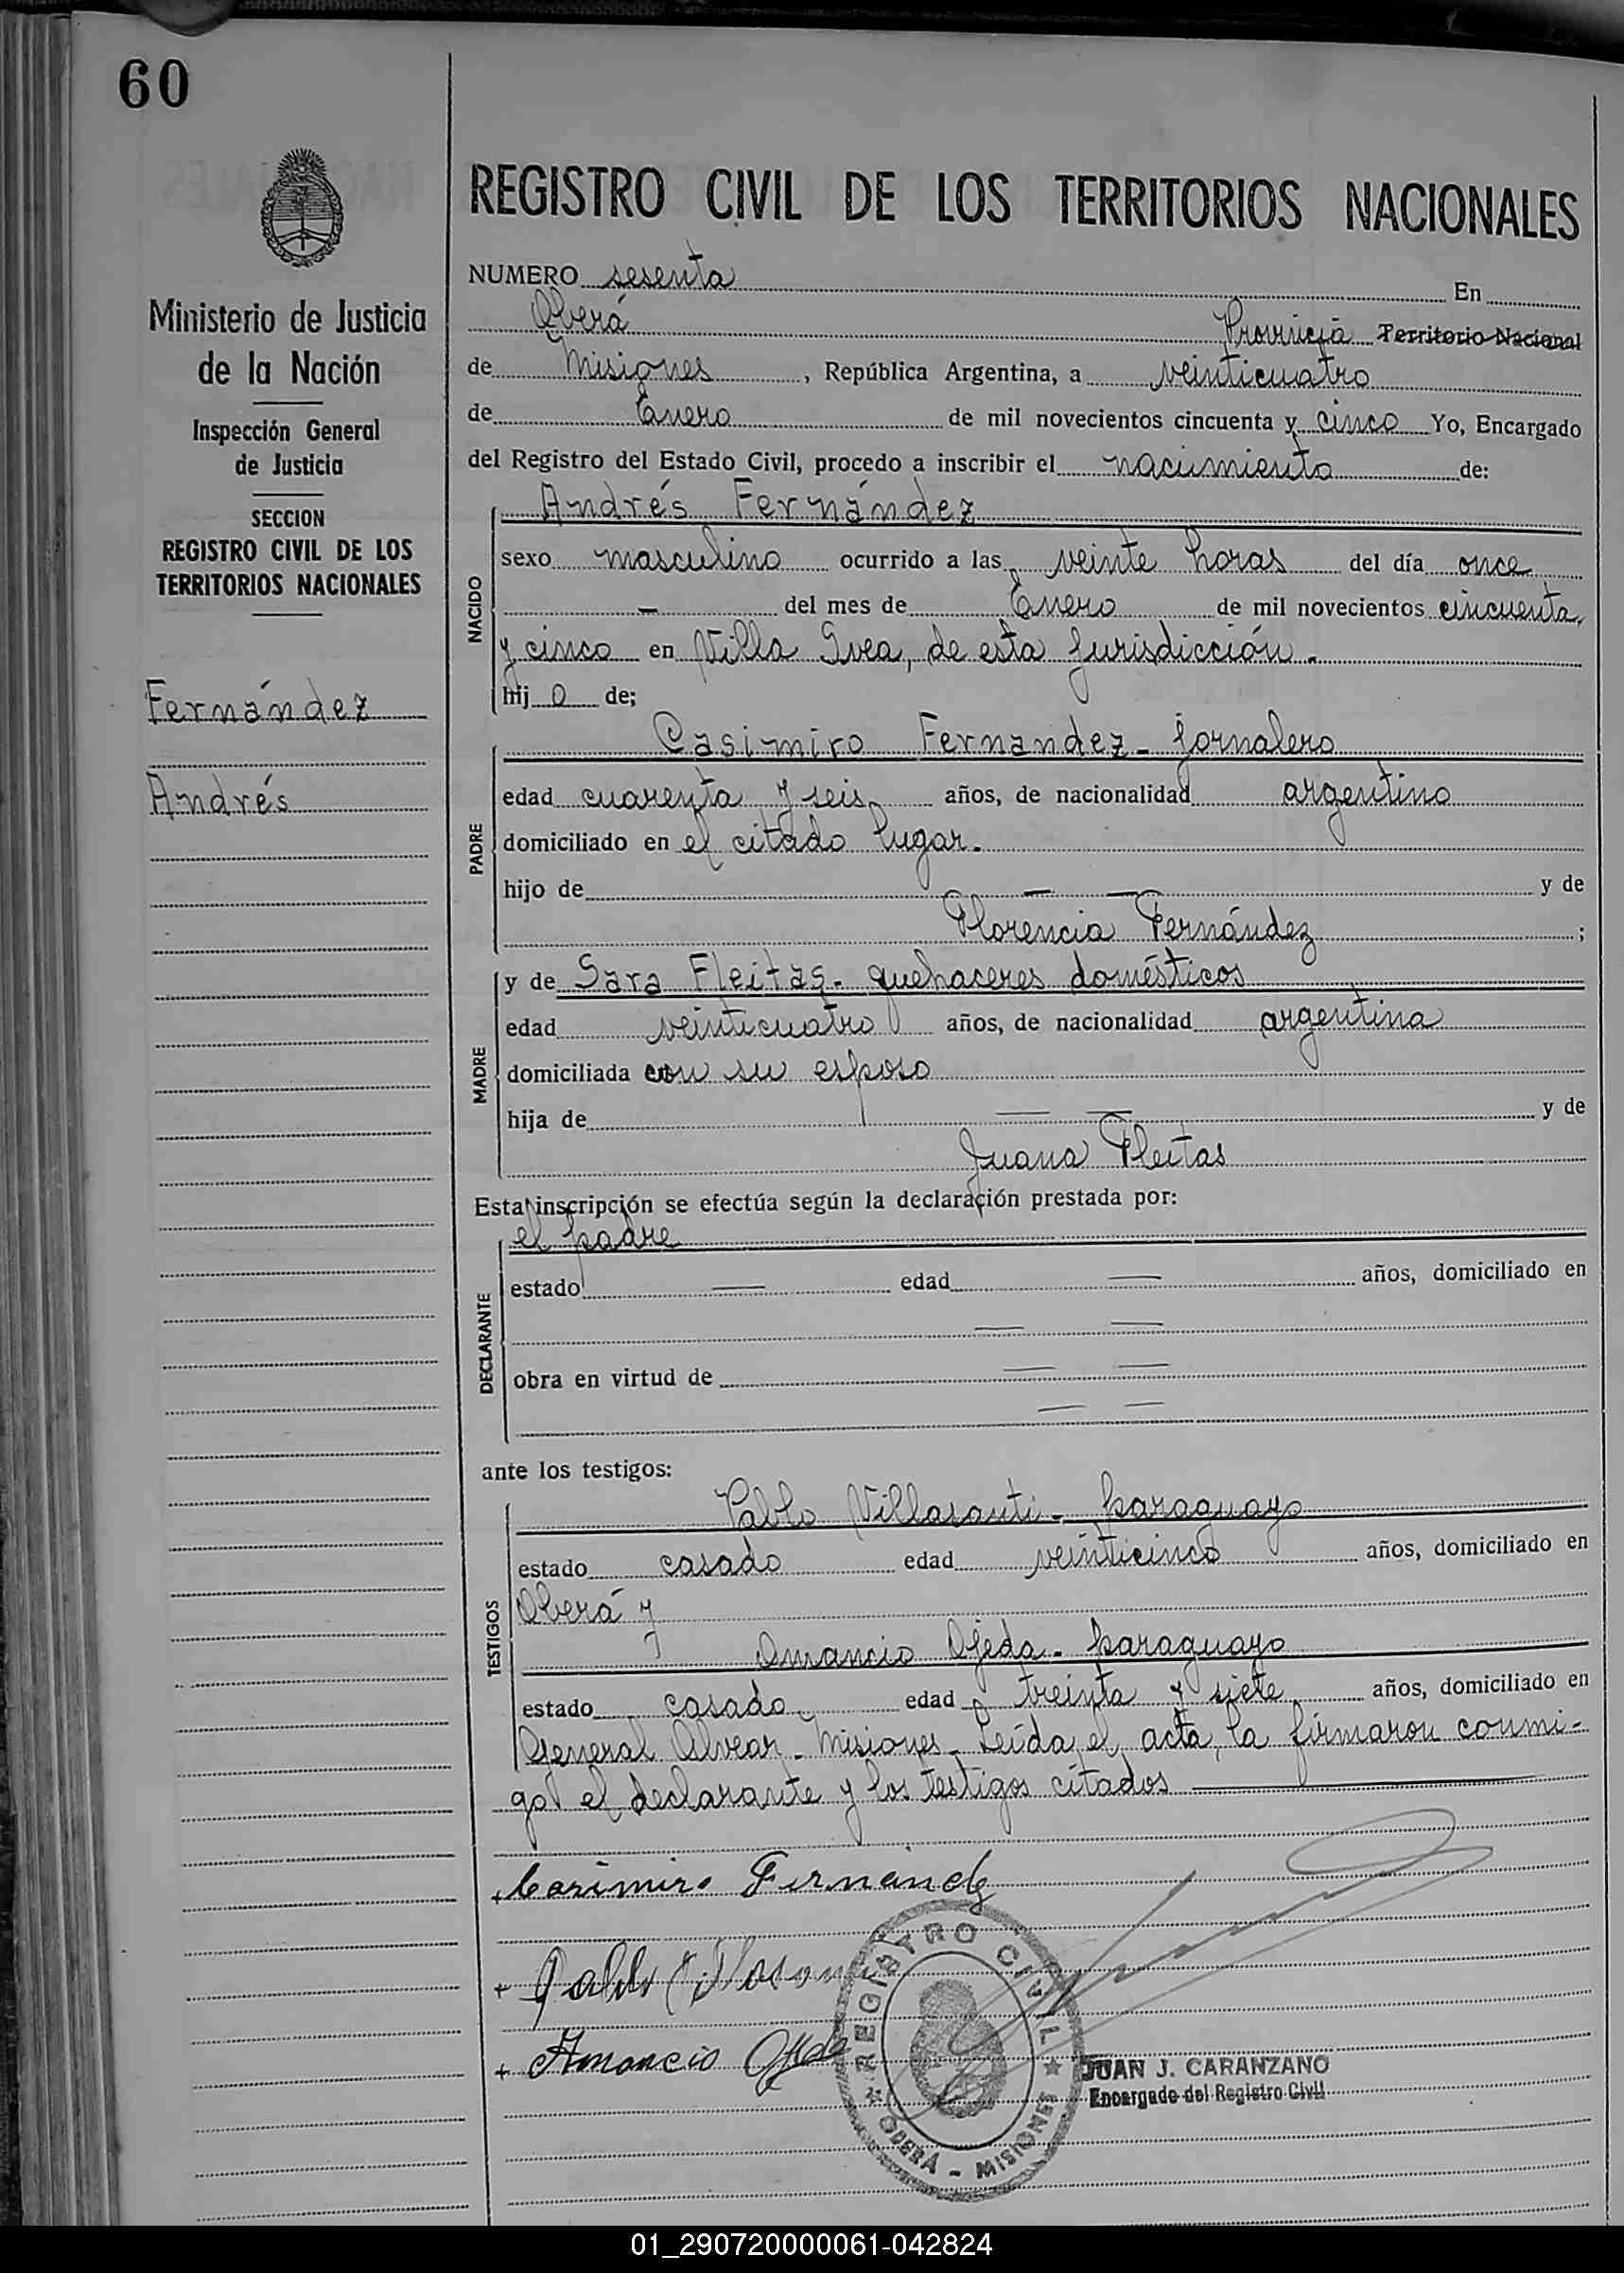 60
REGISTRO CIVIL DE LOS TERRITORIOS NACIONALES
Ministerio de Justicia
de la Nación
Inspección General
de Justicia
SECCION
REGISTRO CIVIL DE LOS
TERRITORIOS NACIONALES
Fernández
Andrés
NUMERO sesenta En
Oberá Provincia Territorio Nacional
de Misiones, República Argentina, a veinticuatro
de Enero de mil novecientos cincuenta y cinco Yo, Encargado
del Registro del Estado Civil, procedo a inscribir el nacimiento de:
NACIDO
Andrés Fernández
sexo masculino ocurrido a las veinte horas del día once
— del mes de Enero de mil novecientos cincuenta
y cinco en Villa Svea, de esta Jurisdicción.
hij o de;
PADRE
Casimiro Fernandez - jornalero
edad cuarenta y seis años, de nacionalidad argentino
domiciliado en el citado lugar.
hijo de — — y de
Florencia Fernández ;
MADRE
y de Sara Fleitas - quehaceres domésticos
edad veinticuatro años, de nacionalidad argentina
domiciliada con su esposo
hija de — — y de
Juana Fleitas
Esta inscripción se efectúa según la declaración prestada por:
DECLARANTE
el padre
estado — edad — años, domiciliado en
— —
obra en virtud de — —
— —
ante los testigos:
TESTIGOS
Pablo Villasanti - paraguayo
estado casado edad veinticinco años, domiciliado en
Oberá y
Amancio Ojeda - paraguayo
estado casado edad treinta y siete años, domiciliado en
General Alvear - Misiones - Leída el acta, la firmaron conmi-
go el declarante y los testigos citados
Casimiro Fernández
+ Pablo Villasanti
+ Amancio Ojeda
REGISTRO CIVIL
OBERÁ - MISIONES
JUAN J. CARANZANO
Encargado del Registro Civil
01_290720000061-042824